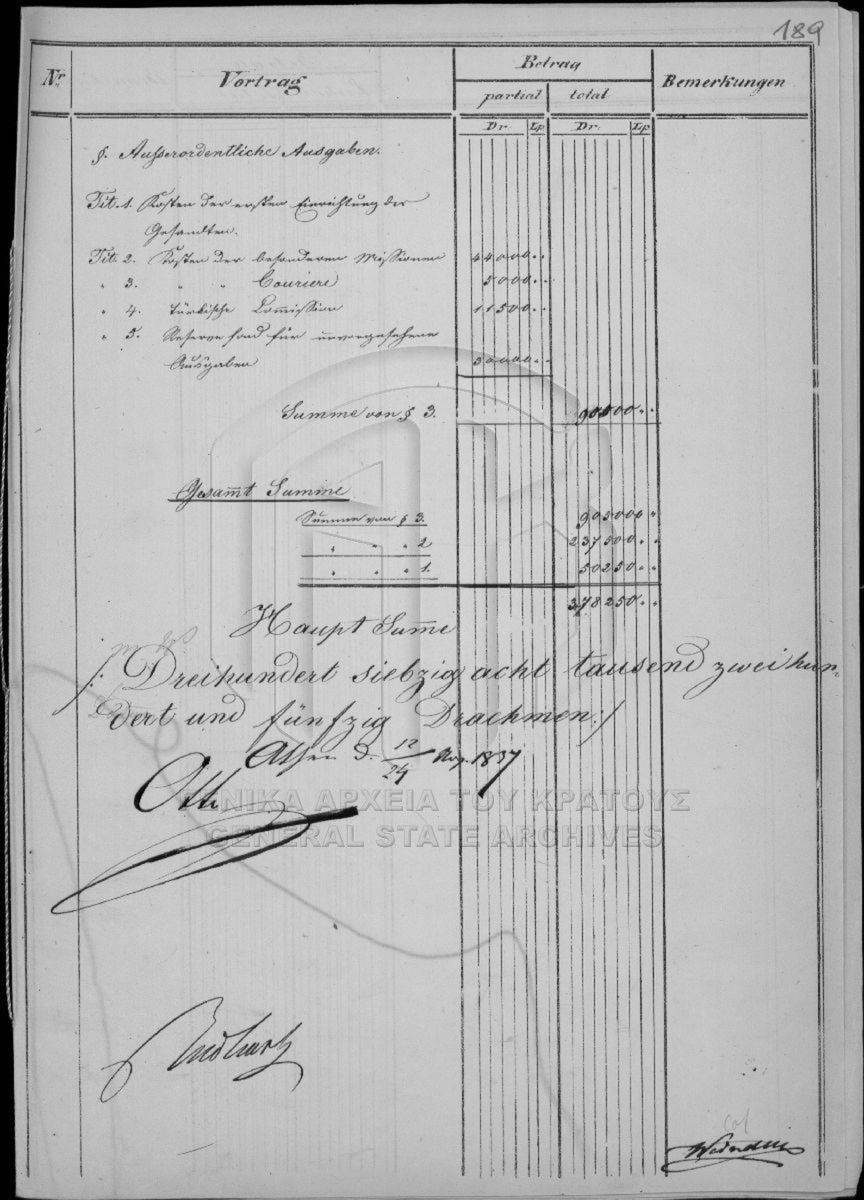 189
Nr. Vortrag Betrag Bemerkungen
partial total
Dr. Lp Dr. Lp
§. Außerordentliche Ausgaben.
Tit. 1. Kosten der ersten Einrichtung der
Gesandten.
Tit. 2. Kosten der besonderen Missionen 44000 " "
" 3. " " Couriere 5000 " "
" 4. türkische Commission 11500 " "
" 5. Reserve fond für unvorgesehene
Ausgaben 30000 " "
Summe von § 3. 90500 " "
Gesam̅t Summe
Summe von § 3. 90500 "
" " " 2 237500 " "
" " " 1. 50250 " "
378250 " "
Haupt Sum̅e
/: Dreihundert siebzig acht tausend zwei hun-
dert und fünfzig Drachmen :/
Athen d. 12/24 1837
Otto
ΓΕΝΙΚΑ ΑΡΧΕΙΑ ΤΟΥ ΚΡΑΤΟΥΣ
GENERAL STATE ARCHIVES
Rudhart